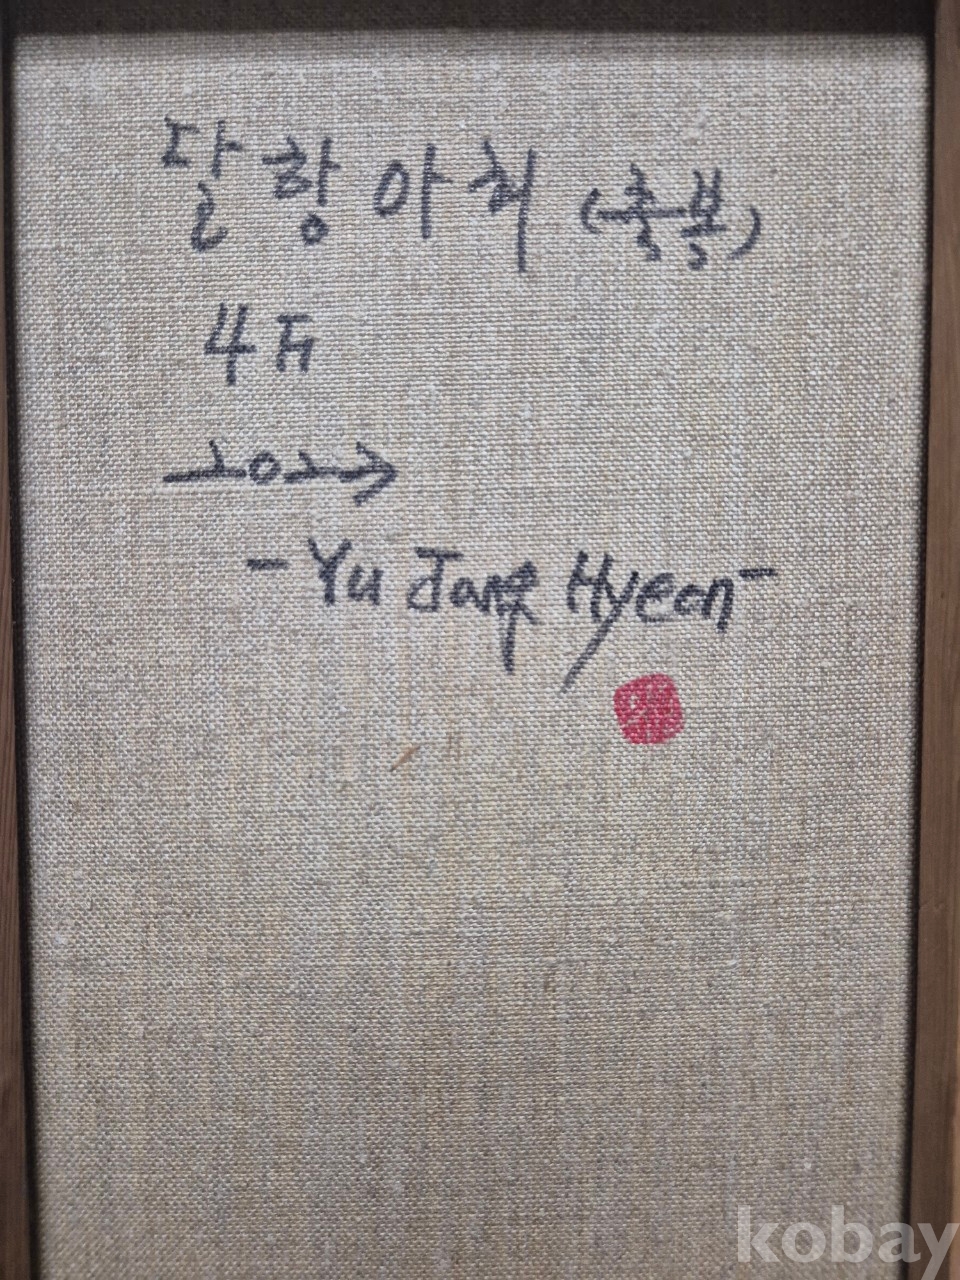 달항아리 (축복)
4F
-Yu Jang Hyeon-
kobay